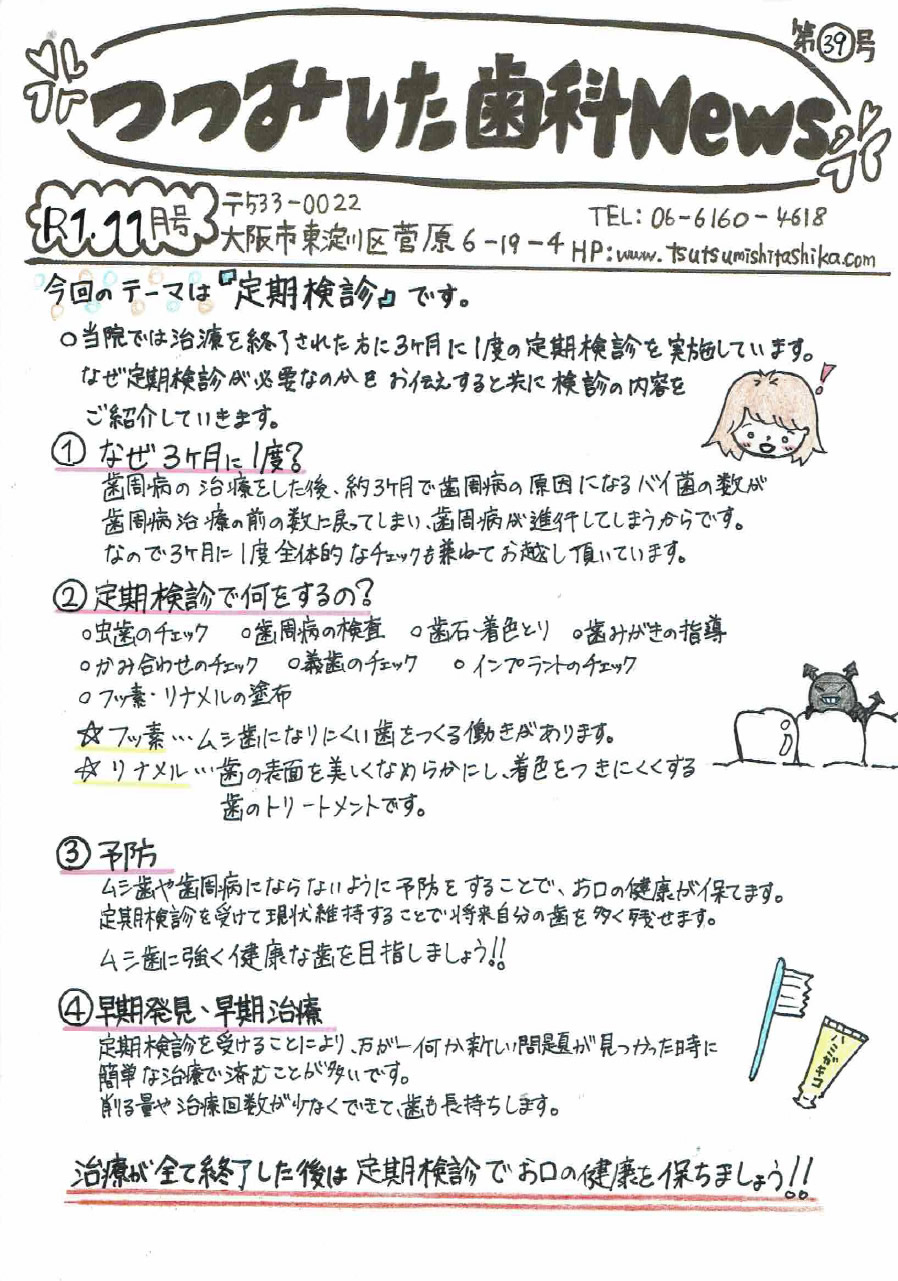 第39号
つつみした歯科News
R1.11月号
〒533-0022
大阪市東淀川区菅原6-19-4
TEL:06-6160-4618
HP:www.tsutsumishitashika.com
今回のテーマは『定期検診』です。
○当院では治療を終了された方に3ヶ月に1度の定期検診を実施しています。
なぜ定期検診が必要なのかをお伝えすると共に検診の内容を
ご紹介していきます。
①なぜ3ヶ月に1度?
歯周病の治療をした後、約3ヶ月で歯周病の原因になるバイ菌の数が
歯周病治療の前の数に戻ってしまい、歯周病が進行してしまうからです。
なので3ヶ月に1度全体的なチェックも兼ねてお越し頂いています。
②定期検診で何をするの?
○虫歯のチェック ○歯周病の検査 ○歯石・着色とり ○歯みがきの指導
○かみ合わせのチェック ○義歯のチェック ○インプラントのチェック
○フッ素・リナメルの塗布
☆フッ素…ムシ歯になりにくい歯をつくる働きがあります。
☆リナメル…歯の表面を美しくなめらかにし、着色をつきにくくする
歯のトリートメントです。
③予防
ムシ歯や歯周病にならないように予防をすることで、お口の健康が保てます。
定期検診を受けて現状維持することで将来自分の歯を多く残せます。
ムシ歯に強く健康な歯を目指しましょう!!
④早期発見、早期治療
定期検診を受けることにより、万が一何か新しい問題が見つかった時に
簡単な治療で済むことが多いです。
削る量や治療回数が少なくできて、歯も長持ちします。
ハミガキコ
治療が全て終了した後は定期検診でお口の健康を保ちましょう!!